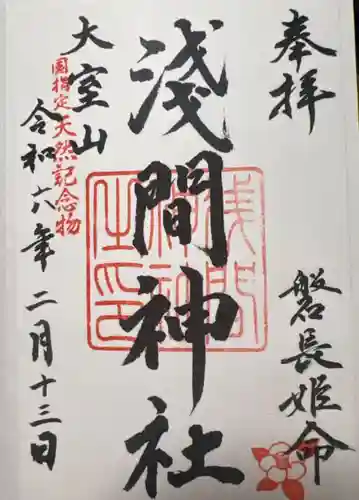 奉拝
磐長姫命
淺間神社
淺間神社之印
大室山
国指定天然記念物
令和六年二月十三日